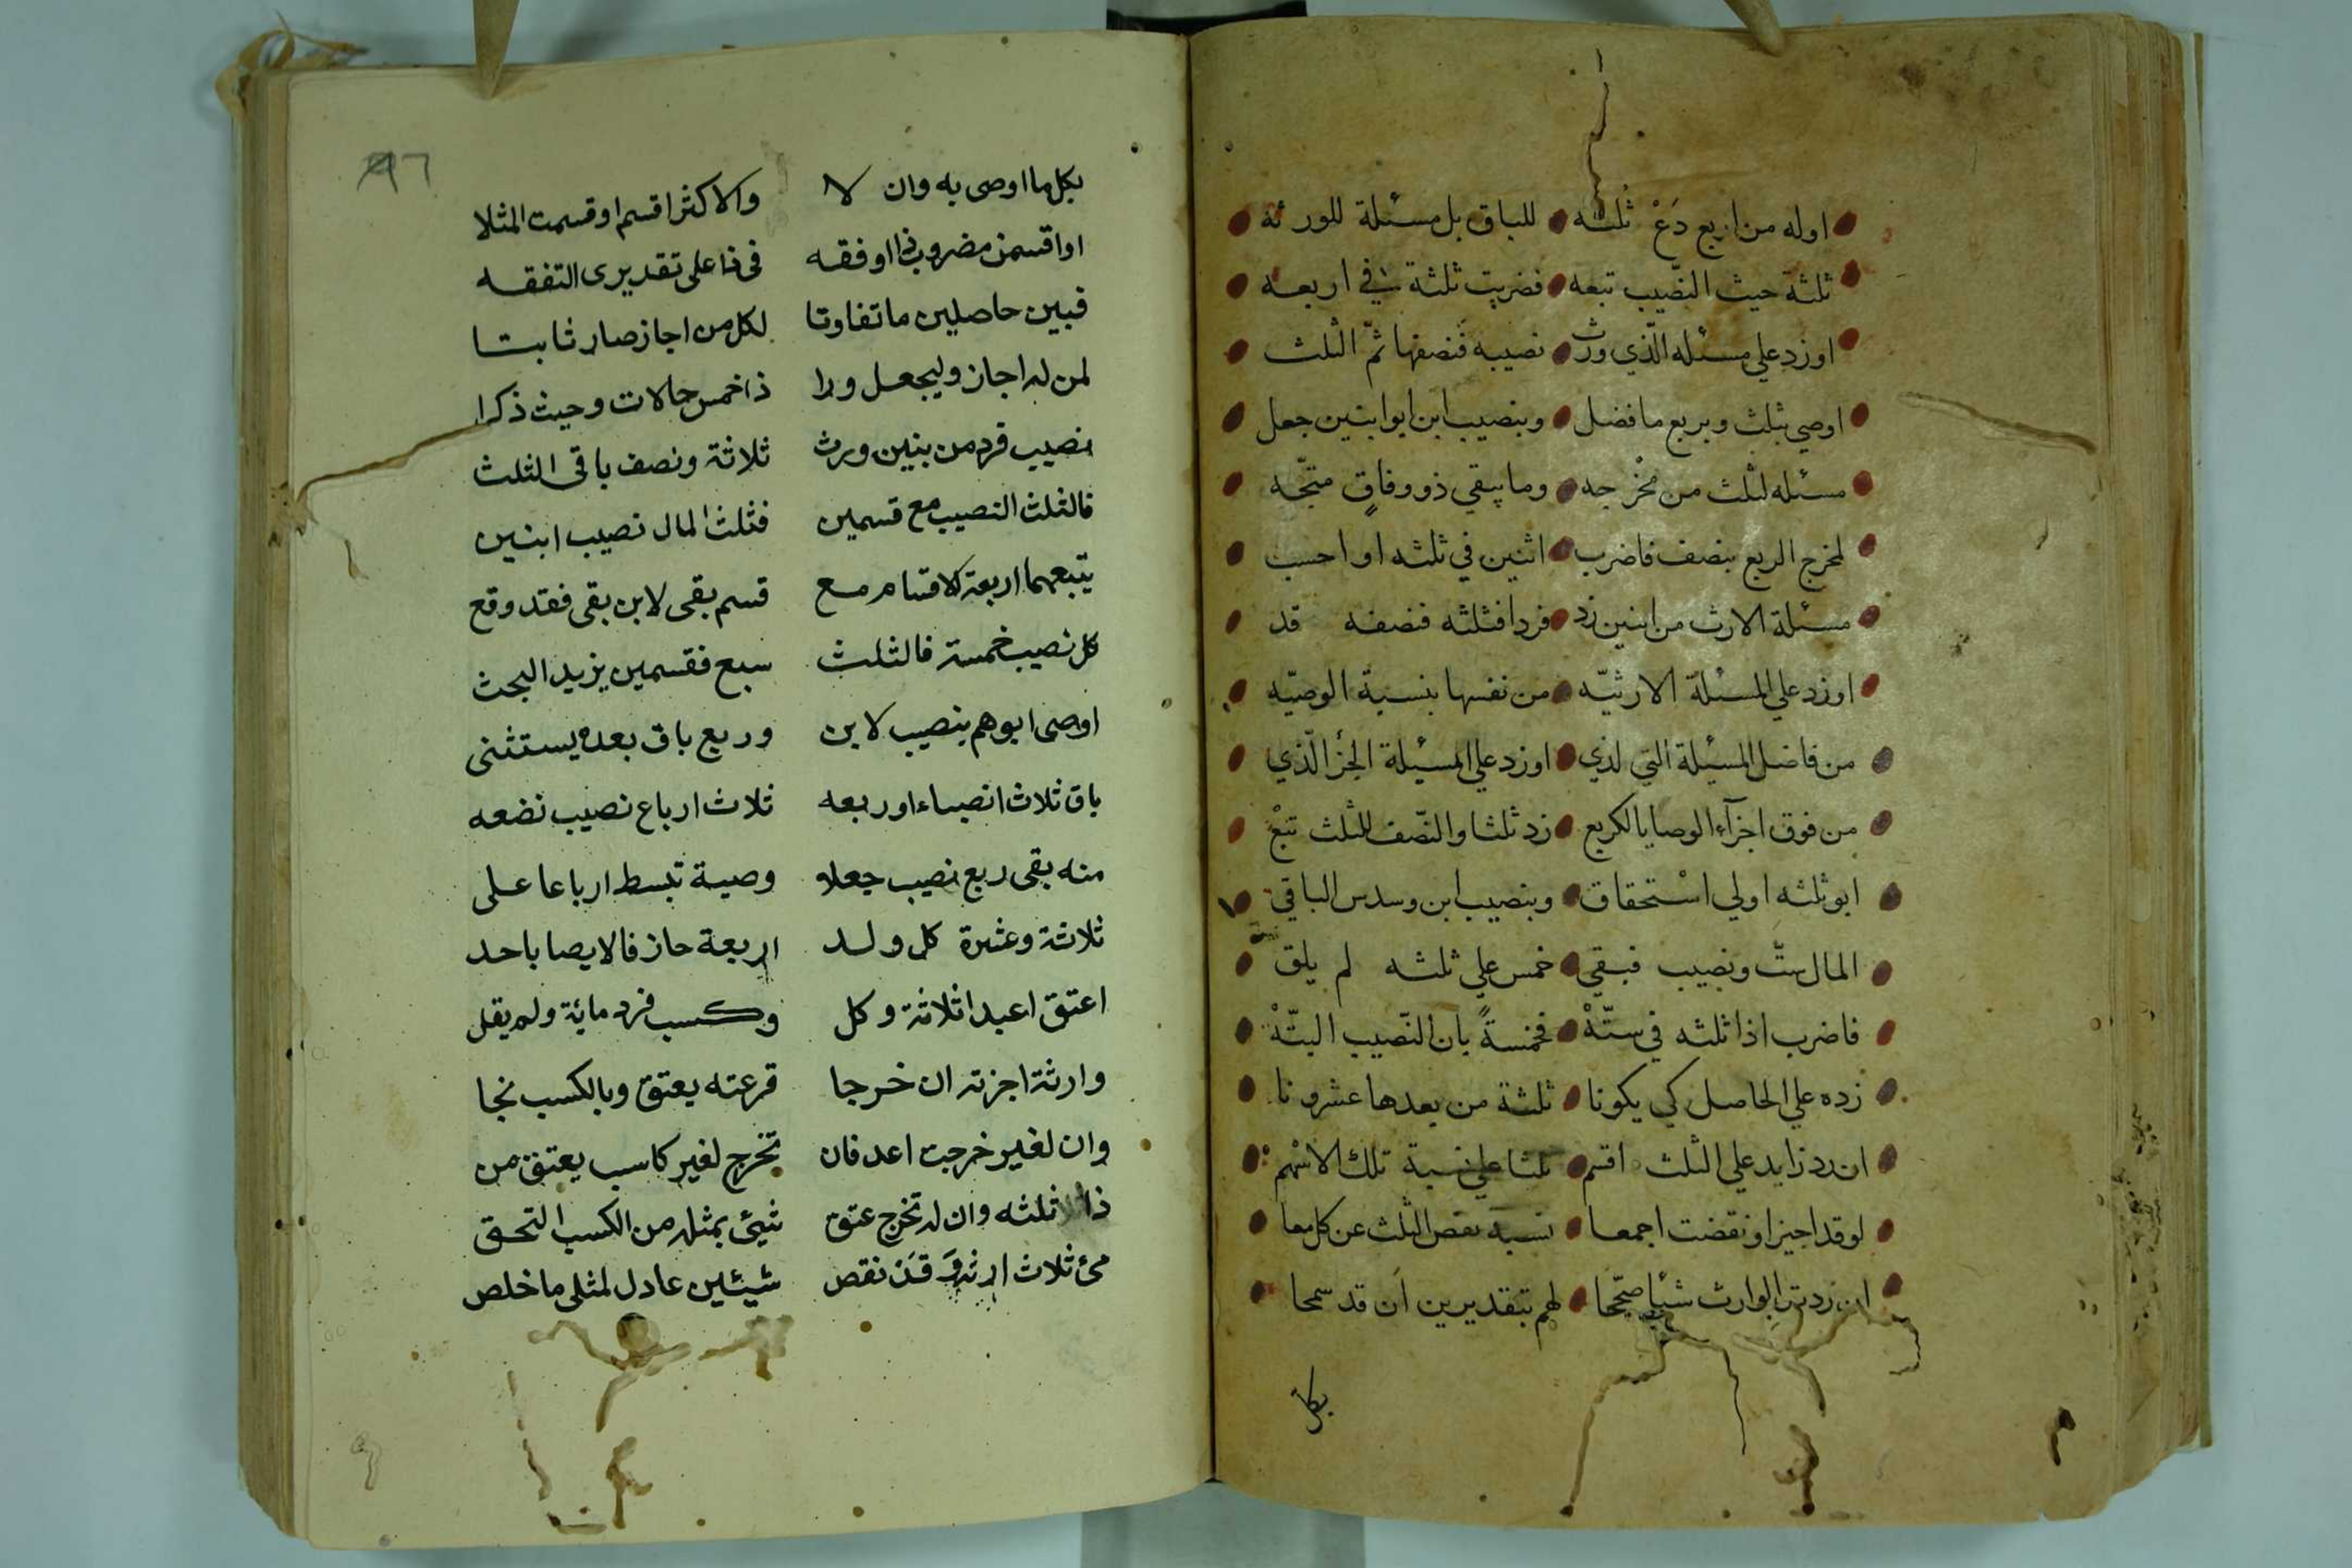 اوله من اربع دَعْ ثلثه للباق بل مسئلة للورثه
ثلثة حيث النّصيب تبعه فضربت ثلثة في اربعه
اوزد على مسئله الّذي ورث نصيبه فنصفها ثمّ الثلث
اوصي بثلث وبربع ما فضل وبنصيب ابن ابوا بنين جعل
مسئله لثلث من مخْرجه وما يبقي ذو وفاقٍ متجّه
لمخرج الربع بنصف فاضرب اثنين في ثلثه او احسب
مسئلة الارث من ابنين زد فردا فثلثه فنصفه قد
اوزد علي المسئلة الارثيّه من نفسها بنسبة الوصيّه
من فاضل المسئلة التي لذي اوزد علي المسئلة الجزْ الّذي
من فوق اجزآء الوصايا لكربع زد ثلثا والنّصف للثلث تبعْ
ابو ثلثه اولي اسْتحقاق وبنصيب ابن وسدس الباقي
المال ستّ ونصيب فبقي خمس علي ثلثه لم يلق
فاضرب اذا ثلثه في ستّهْ فخمسةً بان النّصيب البتّهْ
زده علي الحاصل كي يكونا ثلثة من بعدها عشرونا
ان رد زايد علي الثلث اقسم ثلثا علي نسبة تلك الاسْهم
لو قد اجيز او نقضت اجمعا نسبة نقص الثلث عن كل معا
ان زدت الوارث شئيا صحّحا لهم بتقديرين ان قد سمحا
بكل
٩٦
بكل ما اوصى به وان لا والاكثر اقسم او قسمت المثلا
او اقسمن مضروب ذا او فقه في ذا على تقديرى التفقه
فبين حاصلين ما تفاوتا لكل من اجاز صار ثابتا
لمن له اجاز وليجعل ورا ذا خمس حالات وحيث ذكرا
نصيب فرد من بنين ورث ثلاثة ونصف باقى الثلث
فالثلث النصيب مع قسمين فثلث المال نصيب ابنين
يتبعهما اربعة كلا قسام مع قسم بقى لابن بقى فقد وقع
كل نصيب خمسة فالثلث سبع فقسمين يزيد البحث
اوصى ابوهم بنصيب لابن وربع باق بعده يستثنى
باق ثلاث انصباء اوربعه ثلاث ارباع نصيب نضعه
منه بقى ربع نصيب جعلا وصية تبسط ارباعا على
ثلاثة وعشرة كل ولد اربعة حاز فالايصا باحد
اعتق اعبدا ثلاثة وكل وكسب فرد ماية ولم يقل
وارثة اجزته ان خرجا قرعته يعتق وبالكسب نجا
وان لغير خرجت اعد فان تخرج لغير كاسب يعتق من
ذا ثلثه وان له تخرج عتق شيئ بمثله من الكسب التحق
مئ ثلاث ارثه قد نقص شيئين عادل لمثلى ما خلص